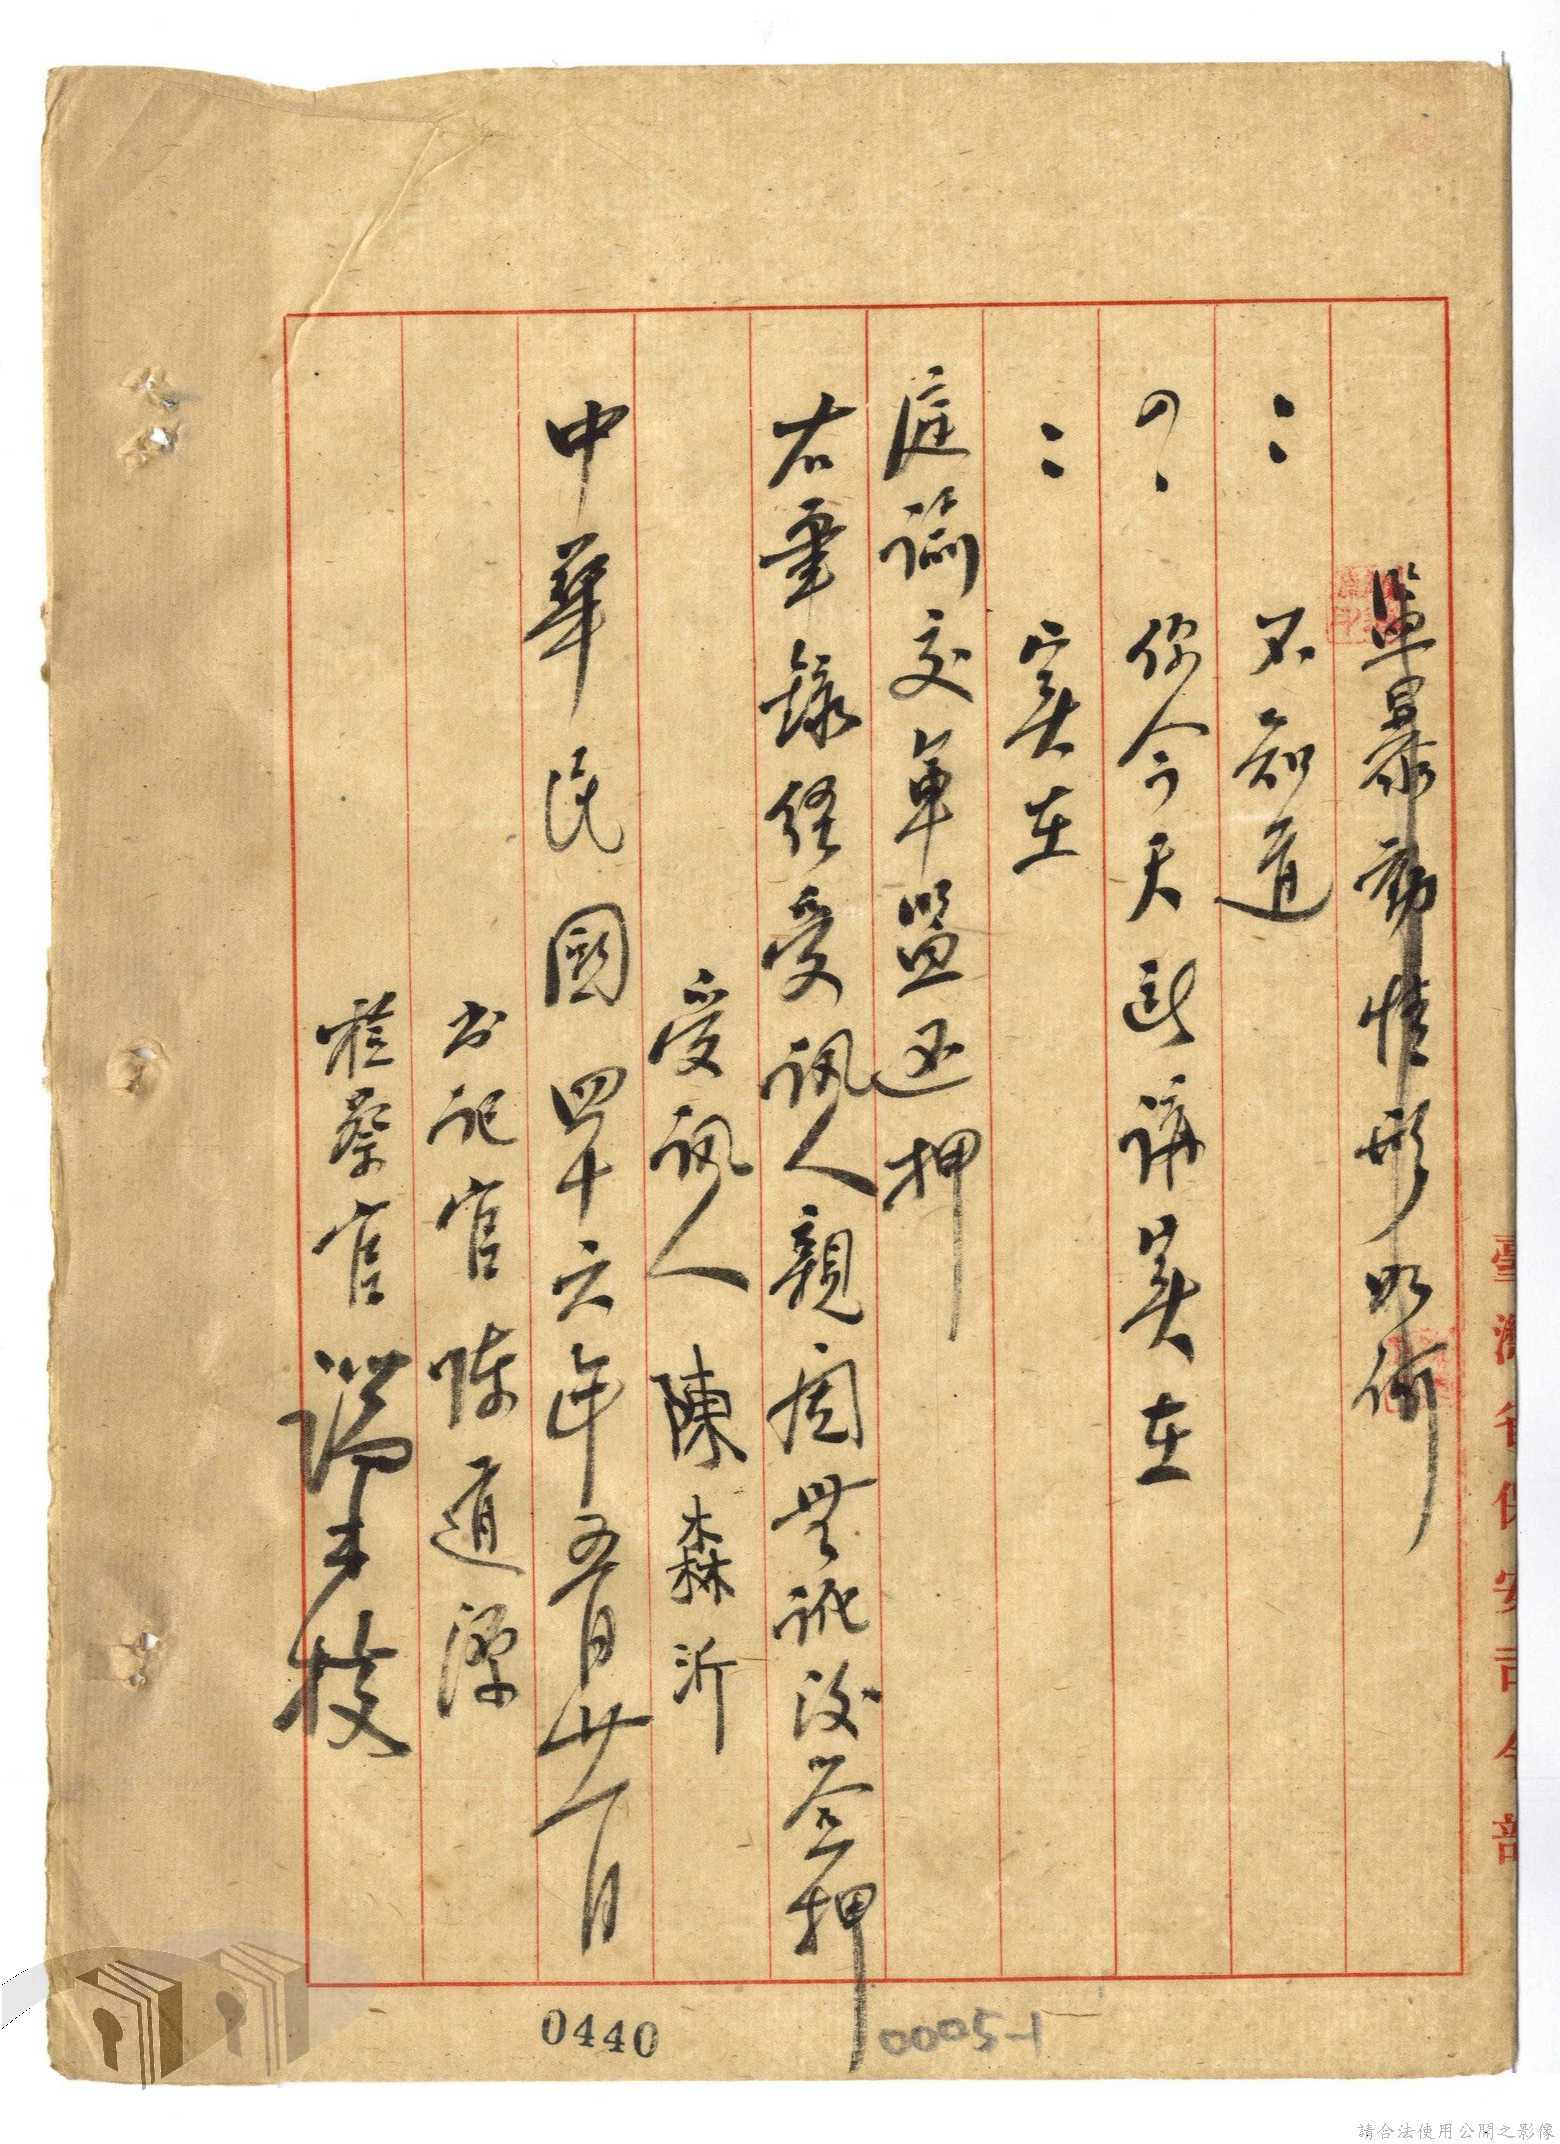 監暴動情形如何
：不知道
？你今天所講实在
：实在
庭諭交軍監还押
右筆錄經受訊人親閱無訛後签押
受訊人 陳森沂
中華民國四十六年五月廿一日
书記官 陳道源
檢察官
臺灣省保安司令部
0440
0005-1
請合法使用公開之影像